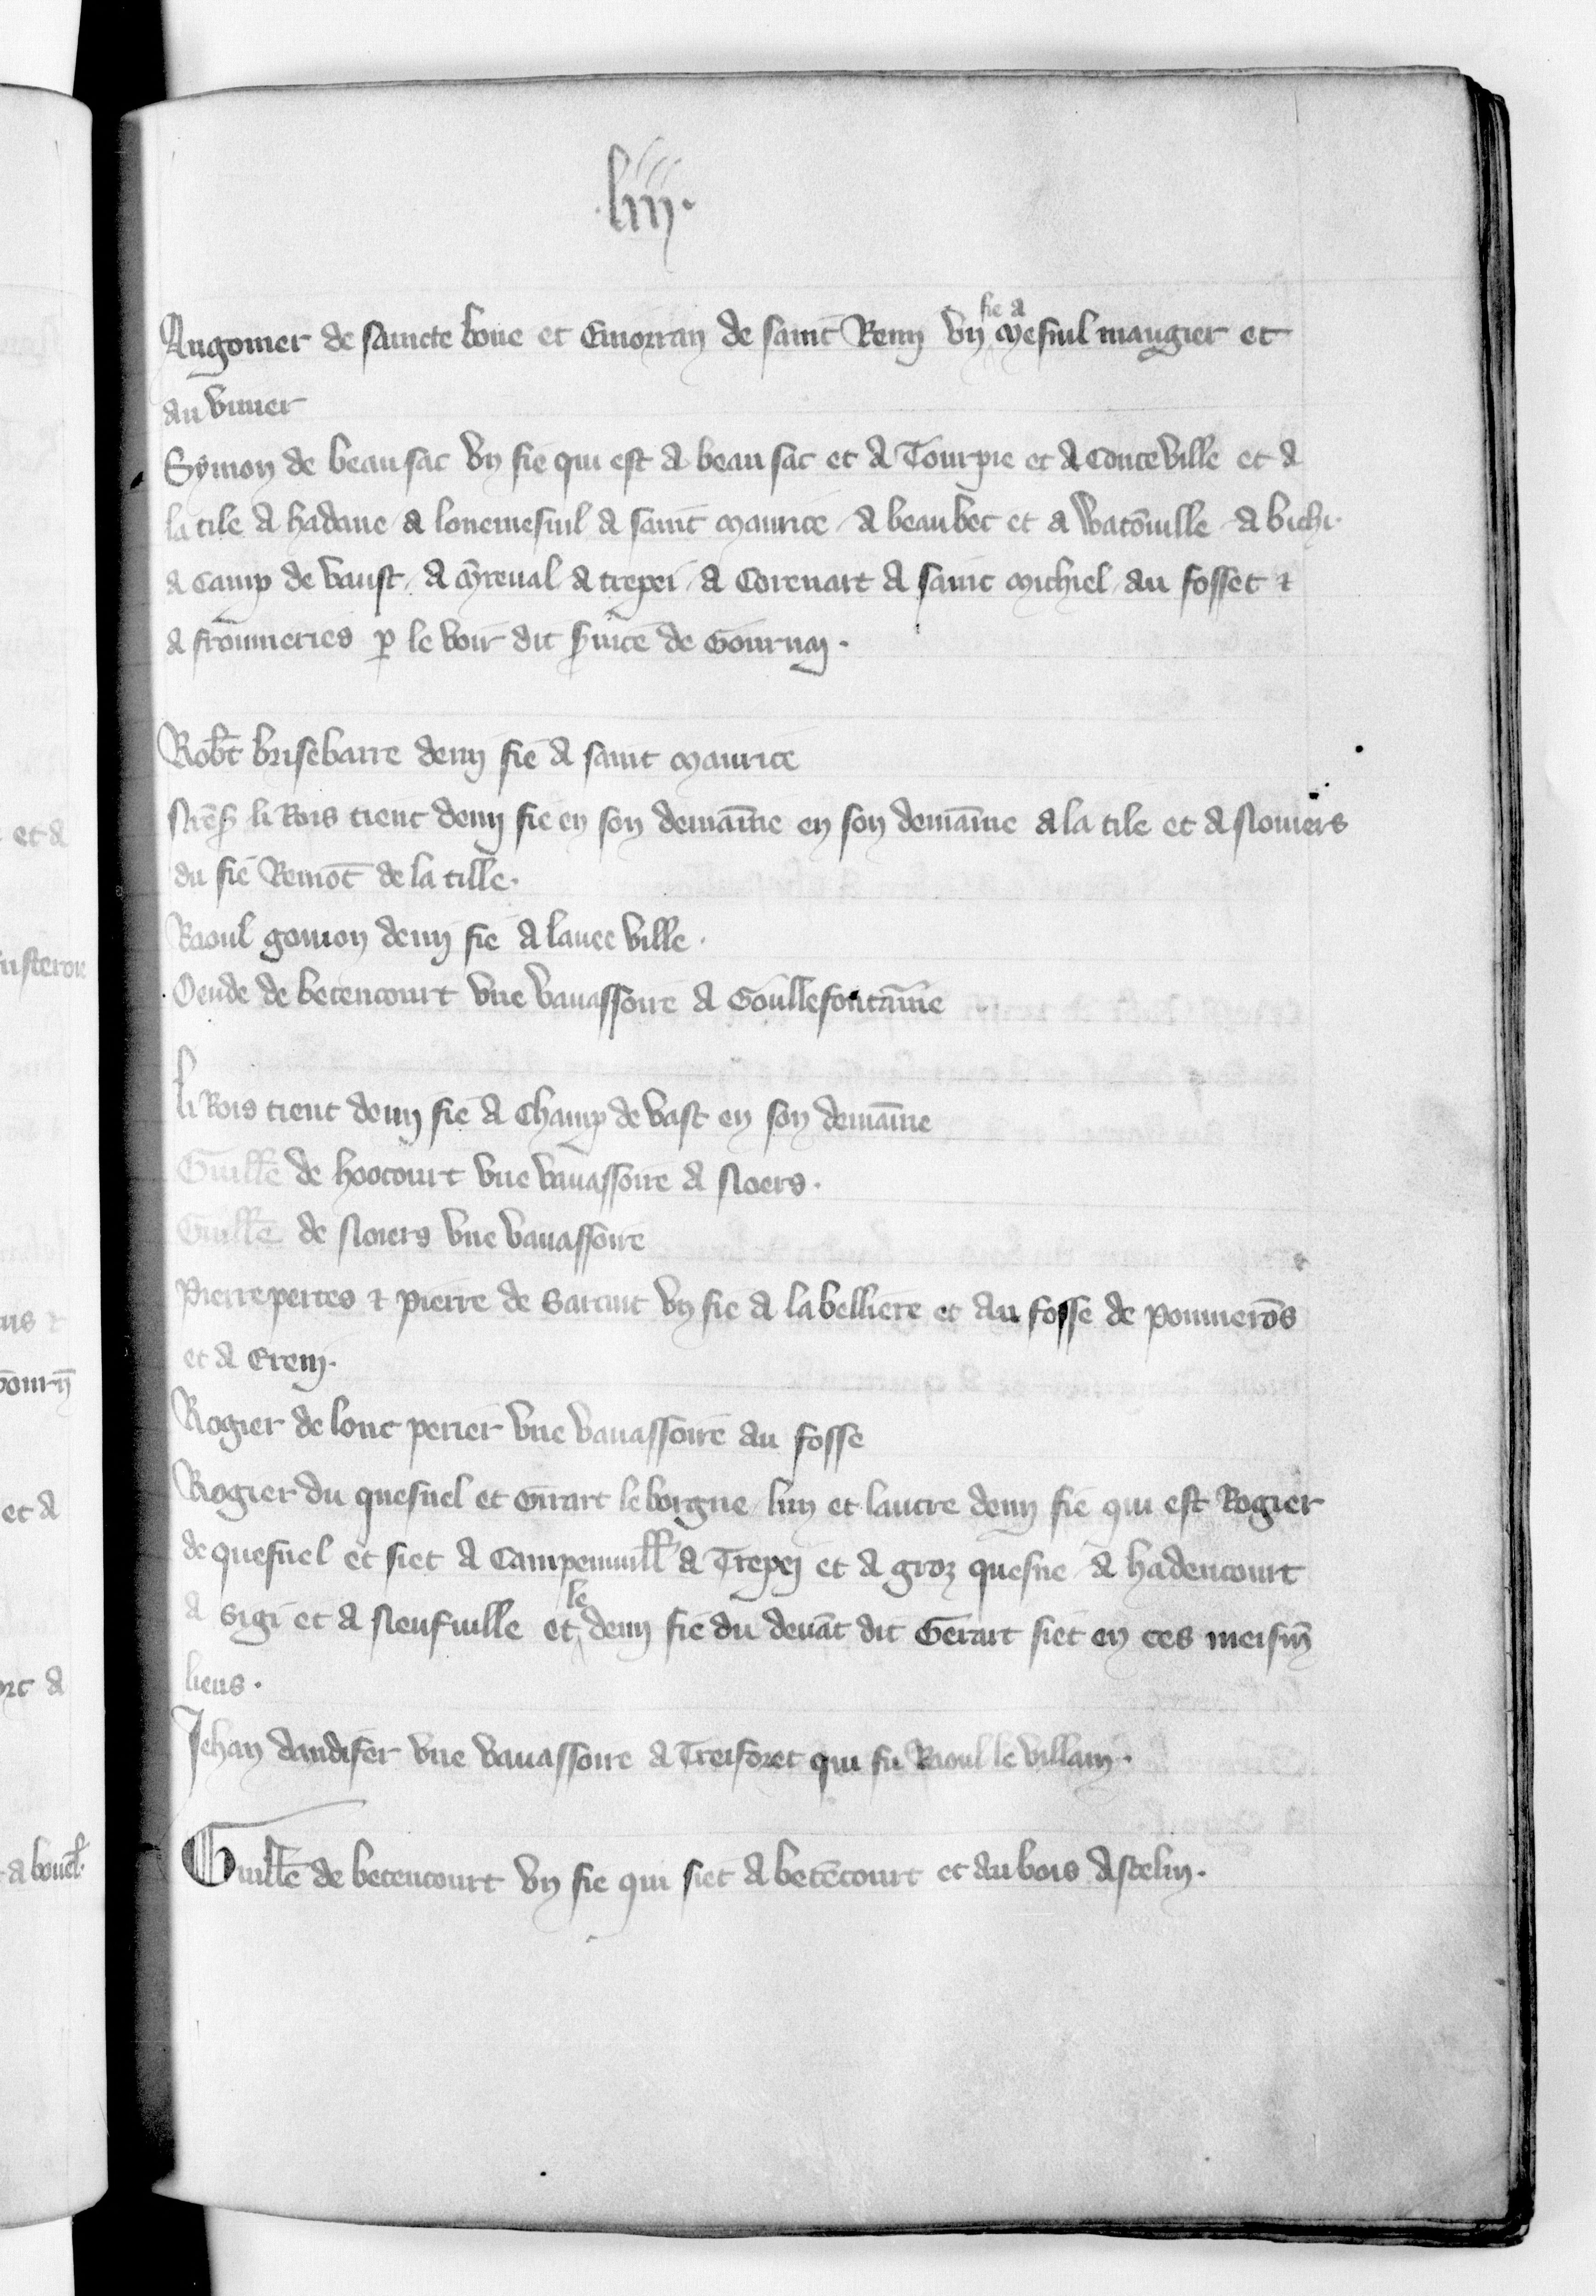 .liiii.
Angomer de saincte boue et Enorran de saint Remy vn fie a Mesnil maugier et
au viuier
Symon de beausac vn fie qui est a beau sac et a Tourpie et a Conteville et a
la tile a hadane a lonemesnil a saint maurice a beaubec et a Watõuille a bichi.
a Camp de vaust a M̃reual a trepei a Corenart a saint michiel au fosset ⁊
a frõmeries p̱ le voir dit s̃uice de Gournay.
Rob̃t brisebarre demy fie a saint maurice
li Rois tient demy fie en son demãine en son demãine a la tile et a Noiuers
du fie Remõt de la tille.
Raoul gouion demy fie a lauee ville.
Oeude de betencourt vne vauassoire a Goullefontãine
li Rois tient demy fie a Champ de vast en son demãine
Guill̃e de hoocourt vne vauassoire a Noers.
Guill̃e de Noiers vne vauassoire
Pierre pertes ⁊ pierre de Sarcuit vn fie a la belliere et au fosse de pommerõs
et a Eremy.
Rogier de lonc perier vne vauassoire au fosse
Rogier du quesnel et Girart le borgne lun et lautre demy fie qui est Rogier
de quesnel et siet a Campeinuill̃ a Trepei et a groz quesne a hadencourt
a Sigi et a Neufuille et le demy fie du deuãt dit Gerart siet en ces meism̃
lieus.
Jehan dandifer vne vauassoire a Treiforet qui fu Raoul le villain.
Guill̃e de betencourt vn fie qui siet a betẽcourt et au bois Astelin.
et a
et a
a bouel̃.